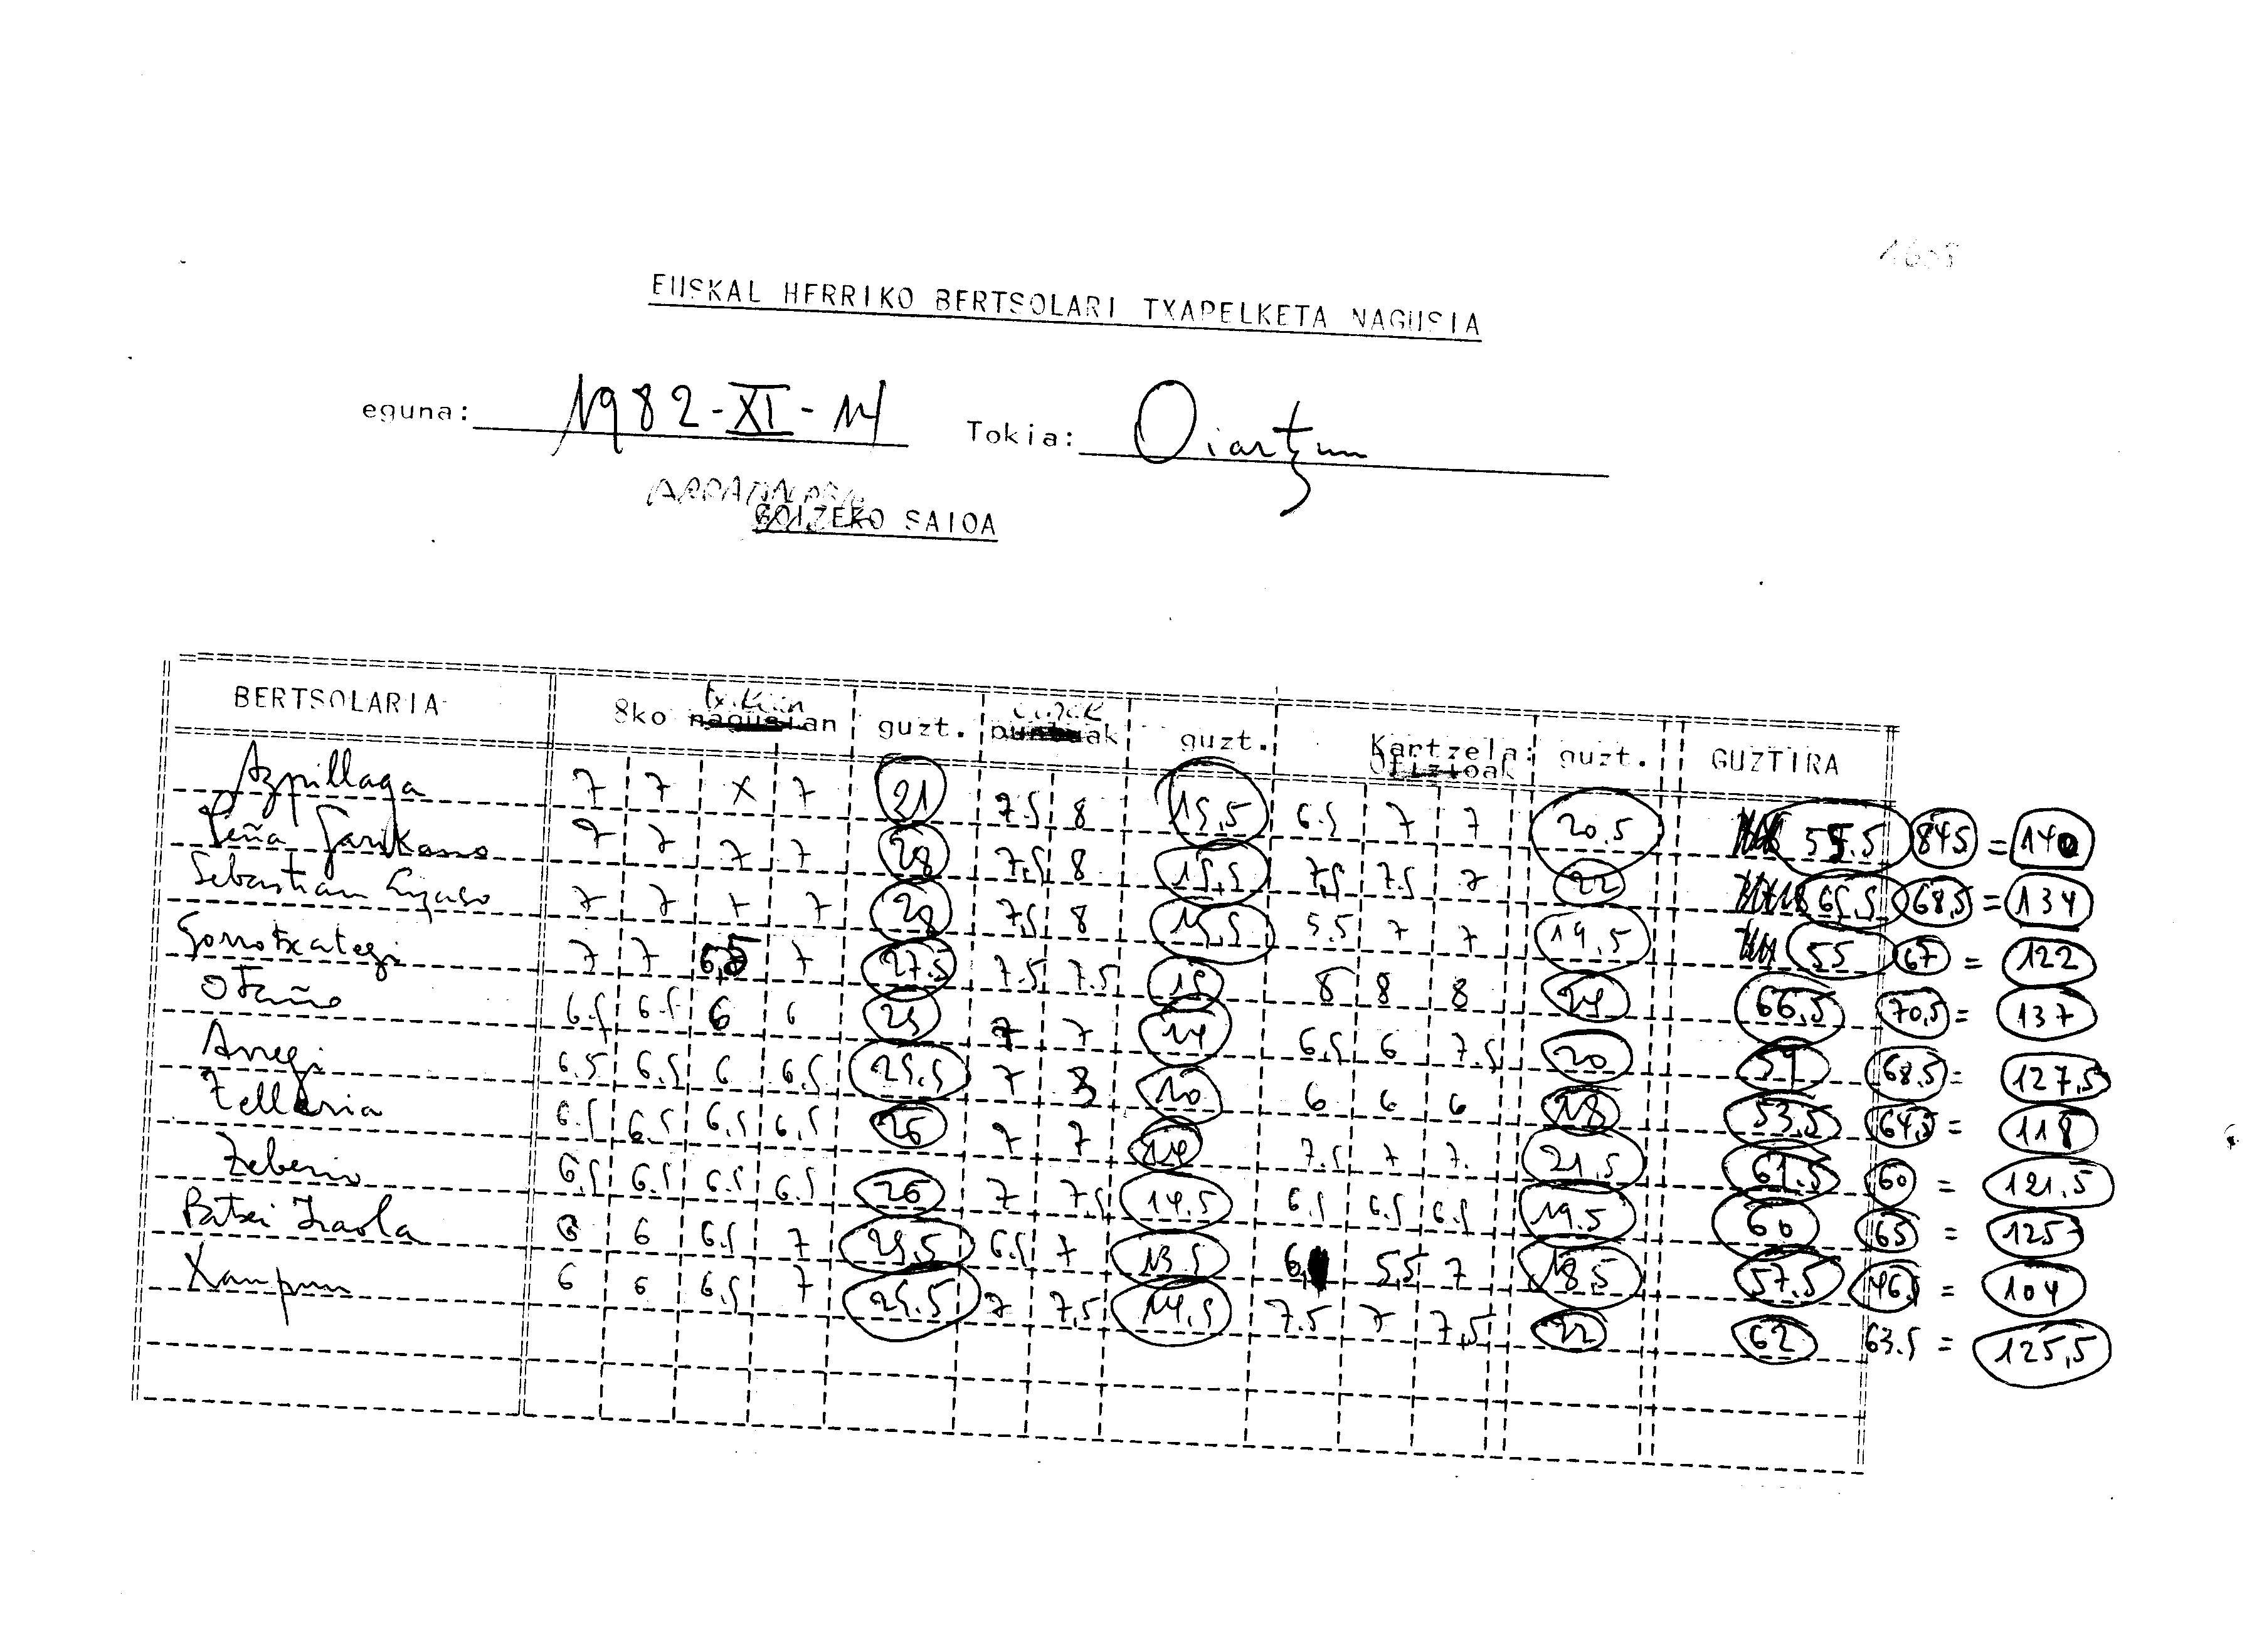 1608
EUSKAL HERRIKO BERTSOLARI TXAPELKETA NAGUSIA
eguna: 1982-XI-14 Tokia: Oiartzun
GOIZEKO SAIOA
BERTSOLARIA 8ko txikian nagusian guzt. puntuak guzt. Kartzela: Ofizioak guzt. GUZTIRA
Azpillaga 7 7 X 7 21 7.5 8 15,5 6.5 7 7 20.5 55.5 84.5 = 140
Peña Garikano 7 7 7 7 28 7,5 8 15,5 7,5 7.5 7 22 65,5 68,5 = 134
Sebastian Lizaso 7 7 7 7 28 7,5 8 15,5 5.5 7 7 19,5 55 67 = 122
Gorrotxategi 7 7 6,5 7 27.5 7.5 7.5 15 8 8 8 24 66,5 70,5 = 137
Otaño 6.5 6.5 6 6 25 7 7 14 6,5 6 7.5 20 59 68.5 = 127,5
Arregi 6.5 6.5 6 6,5 25,5 7 3 10 6 6 6 18 53,5 64,5 = 118
Telleria 6.5 6.5 6,5 6,5 26 7 7 14 7.5 7 7. 21,5 61.5 60 = 121,5
Zeberio 6,5 6.5 6.5 6.5 26 7 7.5 14.5 6.5 6.5 6.5 19.5 60 65 = 125
Patxi Iraola 6 6 6.5 7 25,5 6.5 7 13.5 6, 5,5 7 18,5 57,5 46, = 104
Xanpun 6 6 6.5 7 25.5 7 7,5 14,5 7.5 7 7,5 22 62 63.5 = 125,5